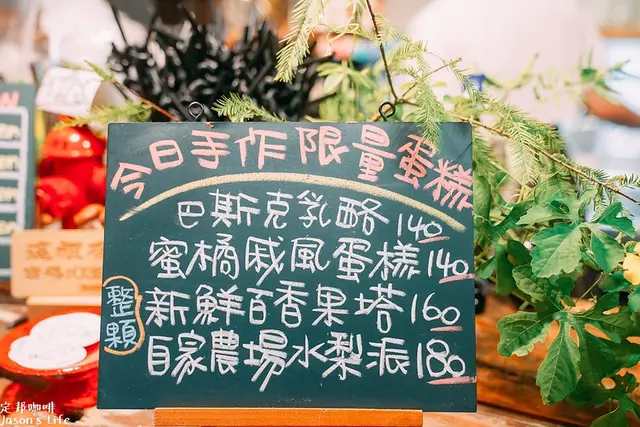 今日手作限量蛋糕
巴斯克乳酪 140
蜜橘戚風蛋糕 140
整顆
新鮮百香果塔 160
自家農場水梨派 180
定邦咖啡
Jason's Life